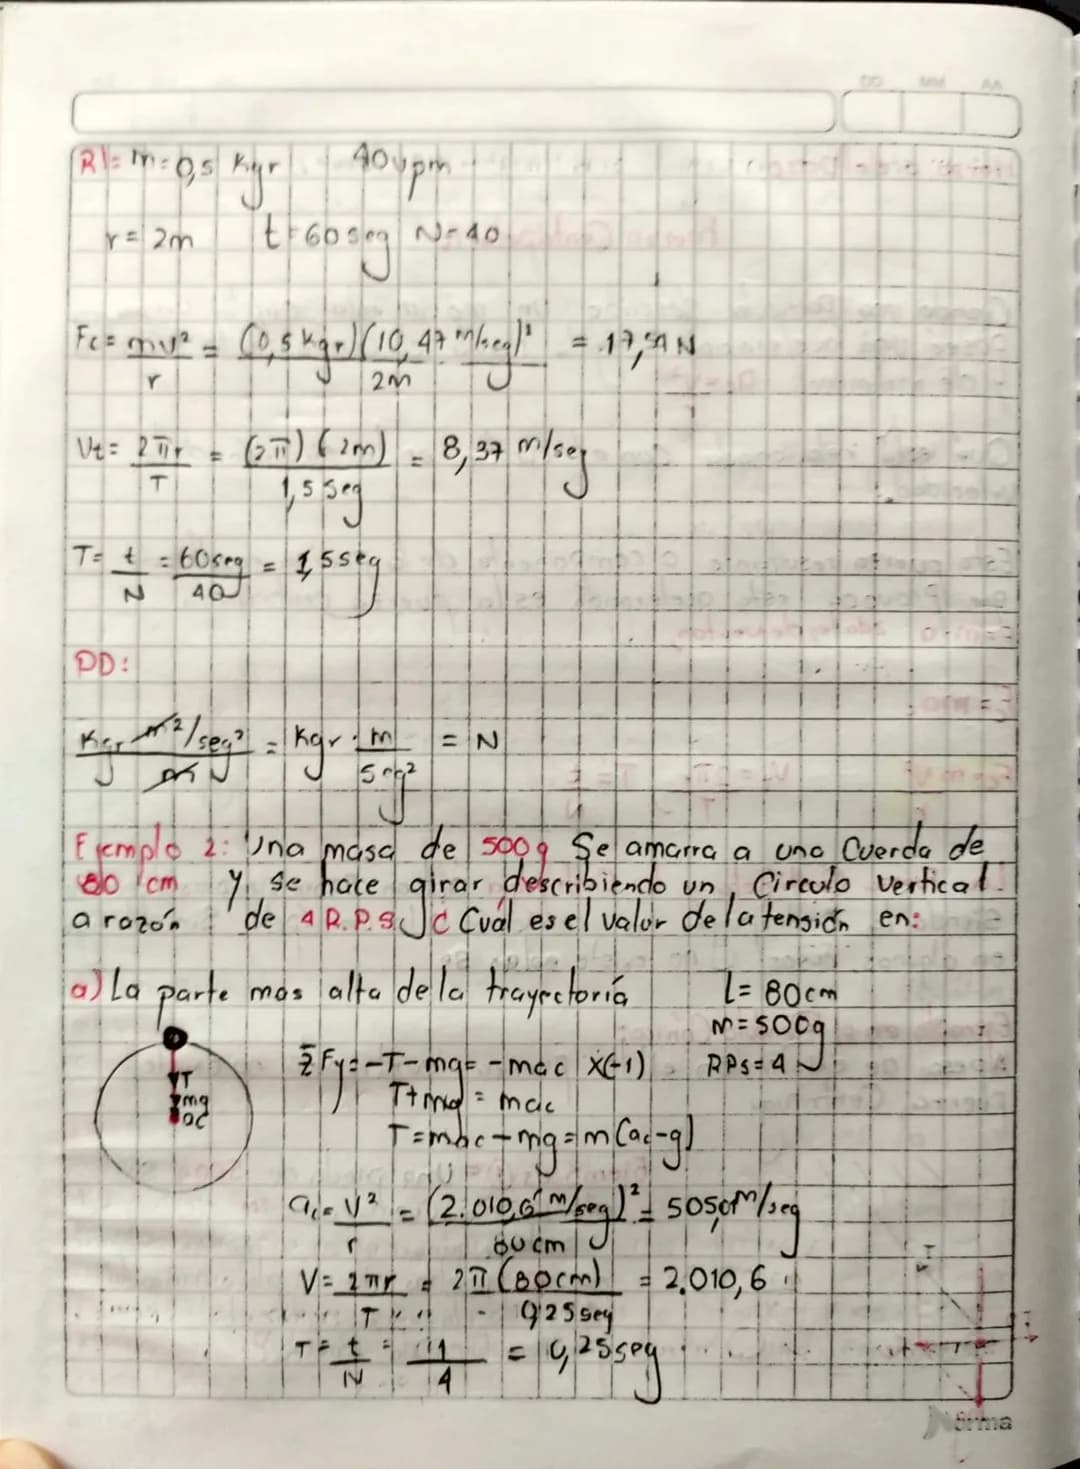 DD MM AA
R1= m=0,5 Kgr 40vpm
r= 2m t=60seg N=40
Fc= mv² = (0,5 Kgr)(10,47 m/seg)² = 17,51N
r 2m
Vt= 2πr = (2π)(2m) = 8,37 m/seg
T 1,5seg
T= t = 60seg = 1,5seg
N 40
DD:
Kgr m²/seg² = Kgr . m = N
m seg²
Ejemplo 2: Una masa de 500g Se amarra a una Cuerda de
80 cm y se hace girar describiendo un Circulo vertical.
a razón de 4 R.P.S. ¿Cuál es el valor de la tensión en:
a) La parte mas alta de la trayectoria L= 80cm
m=500g
ΣFy=-T-mg= -mac x(-1) RPS=4
T+mg = mac
T
mg
ac
T=mac-mg=m(ac-g)
ac= V² = (2.010,6 m/seg)² =
r 80cm
V= 2πr = 2π(80cm) = 2.010,6
T 0,25seg
T= t = 1 = 0,25seg
N 4
Norma